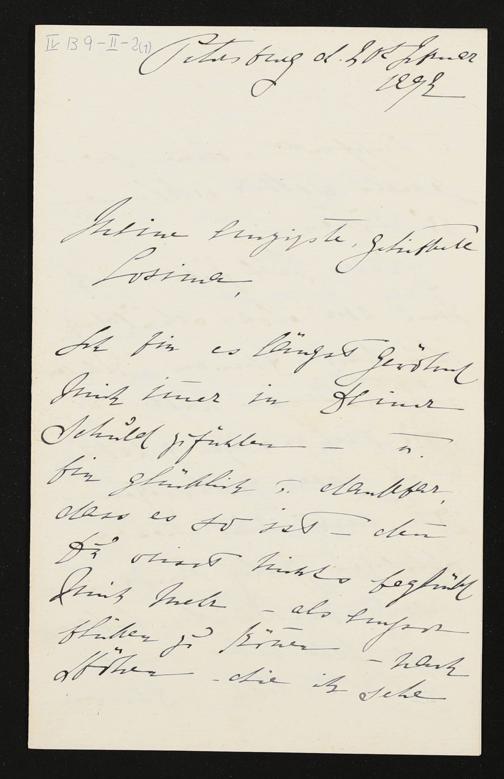 IV B 9-II-2(1)
Petersburg d. 20t Januar
1892
Meine einzigste, geliebteste
Cosima,
Ich bin es längst gewöhnt
Mich im̄er in Deiner
Schuld zu fühlen – u.
bin glücklich u. dankbar,
dass es so ist – den̄
Du weisst nichts beglückt
Mich mehr – als empor
blicken zu kön̄en – nach
Höhen – die ich sehe